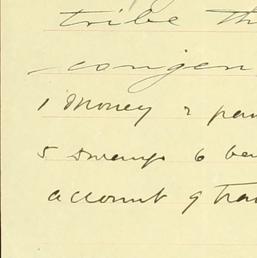 tribe th
congen
1 Money 2 pa
5 swamp 6 be
account of tra